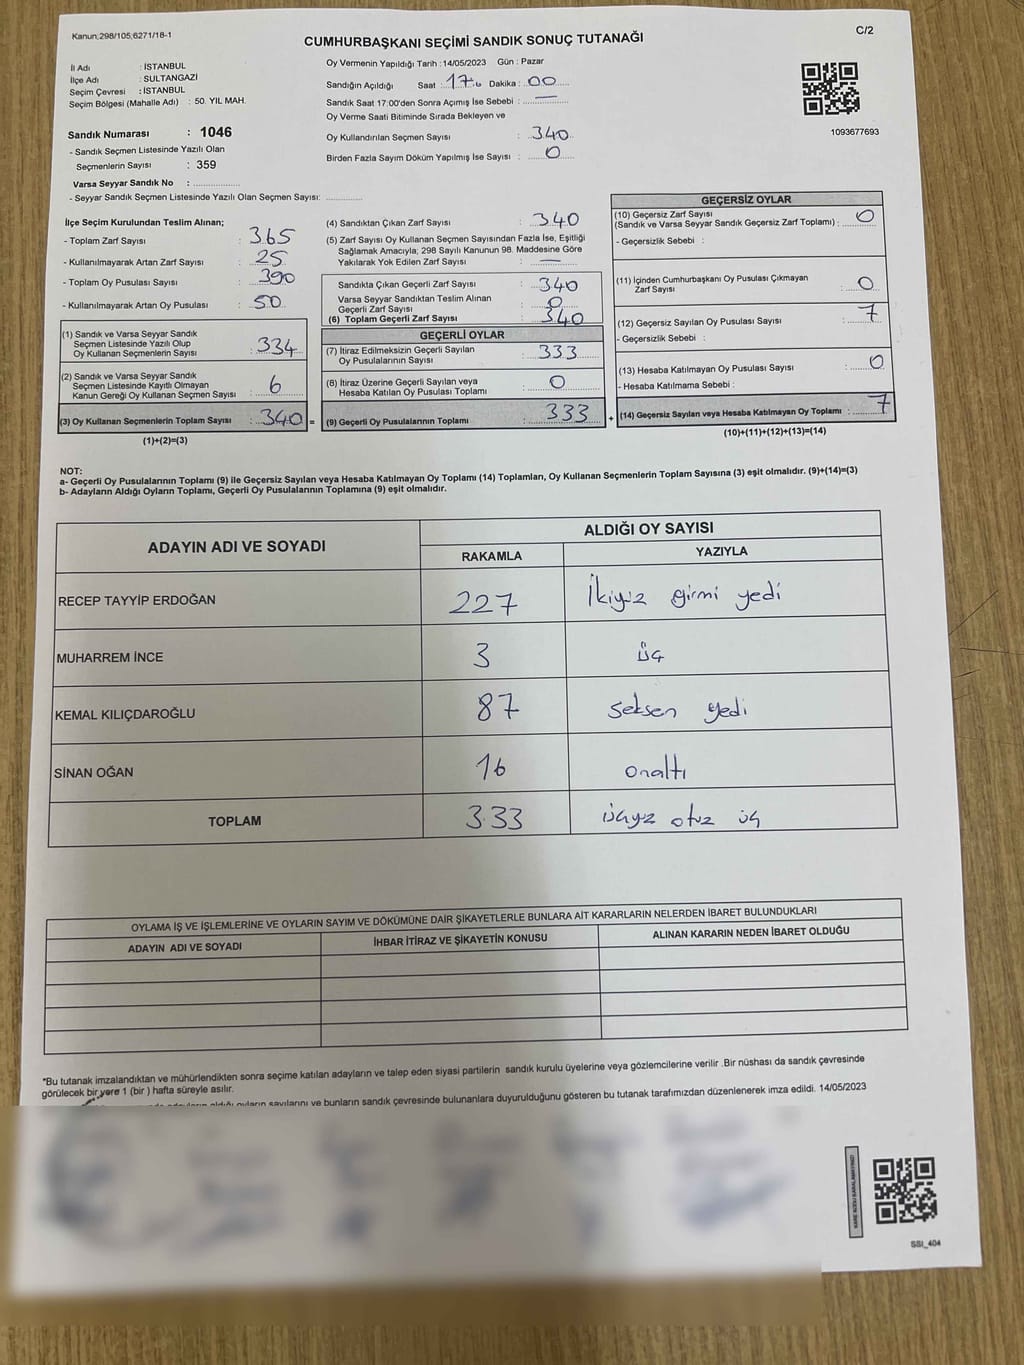 Kanun;298/105;6271/18-1
C/2
CUMHURBAŞKANI SEÇİMİ SANDIK SONUÇ TUTANAĞI
İl Adı : İSTANBUL
İlçe Adı : SULTANGAZİ
Seçim Çevresi : İSTANBUL
Seçim Bölgesi (Mahalle Adı) : 50. YIL MAH.
Sandık Numarası : 1046
- Sandık Seçmen Listesinde Yazılı Olan
Seçmenlerin Sayısı : 359
Varsa Seyyar Sandık No : ...................
- Seyyar Sandık Seçmen Listesinde Yazılı Olan Seçmen Sayısı: ..............
Oy Vermenin Yapıldığı Tarih :14/05/2023 Gün : Pazar
Sandığın Açıldığı Saat : 17 Dakika : 00
Sandık Saat 17:00'den Sonra Açımış İse Sebebi : —
Oy Verme Saati Bitiminde Sırada Bekleyen ve
Oy Kullandırılan Seçmen Sayısı : 340
Birden Fazla Sayım Döküm Yapılmış İse Sayısı : 0
1093677693
İlçe Seçim Kurulundan Teslim Alınan;
- Toplam Zarf Sayısı : 365
- Kullanılmayarak Artan Zarf Sayısı : 25
- Toplam Oy Pusulası Sayısı : 390
- Kullanılmayarak Artan Oy Pusulası : 50
(1) Sandık ve Varsa Seyyar Sandık
Seçmen Listesinde Yazılı Olup
Oy Kullanan Seçmenlerin Sayısı : 334
(2) Sandık ve Varsa Seyyar Sandık
Seçmen Listesinde Kayıtlı Olmayan
Kanun Gereği Oy Kullanan Seçmen Sayısı : 6
(3) Oy Kullanan Seçmenlerin Toplam Sayısı : 340 =
(1)+(2)=(3)
(4) Sandıktan Çıkan Zarf Sayısı : 340
(5) Zarf Sayısı Oy Kullanan Seçmen Sayısından Fazla İse, Eşitliği
Sağlamak Amacıyla; 298 Sayılı Kanunun 98. Maddesine Göre
Yakılarak Yok Edilen Zarf Sayısı : —
Sandıkta Çıkan Geçerli Zarf Sayısı : 340
Varsa Seyyar Sandıktan Teslim Alınan
Geçerli Zarf Sayısı : 0
(6) Toplam Geçerli Zarf Sayısı : 340
GEÇERLİ OYLAR
(7) İtiraz Edilmeksizin Geçerli Sayılan
Oy Pusulalarının Sayısı : 333
(8) İtiraz Üzerine Geçerli Sayılan veya
Hesaba Katılan Oy Pusulası Toplamı : 0
(9) Geçerli Oy Pusulalarının Toplamı : 333 +
GEÇERSİZ OYLAR
(10) Geçersiz Zarf Sayısı
(Sandık ve Varsa Seyyar Sandık Geçersiz Zarf Toplamı) : 0
- Geçersizlik Sebebi :
(11) İçinden Cumhurbaşkanı Oy Pusulası Çıkmayan
Zarf Sayısı : 0
(12) Geçersiz Sayılan Oy Pusulası Sayısı : 7
- Geçersizlik Sebebi :
(13) Hesaba Katılmayan Oy Pusulası Sayısı : 0
- Hesaba Katılmama Sebebi :
(14) Geçersiz Sayılan veya Hesaba Katılmayan Oy Toplamı : 7
(10)+(11)+(12)+(13)=(14)
NOT:
a- Geçerli Oy Pusulalarının Toplamı (9) ile Geçersiz Sayılan veya Hesaba Katılmayan Oy Toplamı (14) Toplamları, Oy Kullanan Seçmenlerin Toplam Sayısına (3) eşit olmalıdır. (9)+(14)=(3)
b- Adayların Aldığı Oyların Toplamı, Geçerli Oy Pusulalarının Toplamına (9) eşit olmalıdır.
ADAYIN ADI VE SOYADI
ALDIĞI OY SAYISI
RAKAMLA YAZIYLA
RECEP TAYYİP ERDOĞAN 227 İkiyüz yirmi yedi
MUHARREM İNCE 3 üç
KEMAL KILIÇDAROĞLU 87 seksen yedi
SİNAN OĞAN 16 onaltı
TOPLAM 333 üçyüz otuz üç
OYLAMA İŞ VE İŞLEMLERİNE VE OYLARIN SAYIM VE DÖKÜMÜNE DAİR ŞİKAYETLERLE BUNLARA AİT KARARLARIN NELERDEN İBARET BULUNDUKLARI
ADAYIN ADI VE SOYADI İHBAR İTİRAZ VE ŞİKAYETİN KONUSU ALINAN KARARIN NEDEN İBARET OLDUĞU
*Bu tutanak imzalandıktan ve mühürlendikten sonra seçime katılan adayların ve talep eden siyasi partilerin sandık kurulu üyelerine veya gözlemcilerine verilir .Bir nüshası da sandık çevresinde
görülecek bir yere 1 (bir ) hafta süreyle asılır.
oyların sayılarını ve bunların sandık çevresinde bulunanlara duyurulduğunu gösteren bu tutanak tarafımızdan düzenlenerek imza edildi. 14/05/2023
KARE KODU KARALAMAYINIZ!
SSI_404